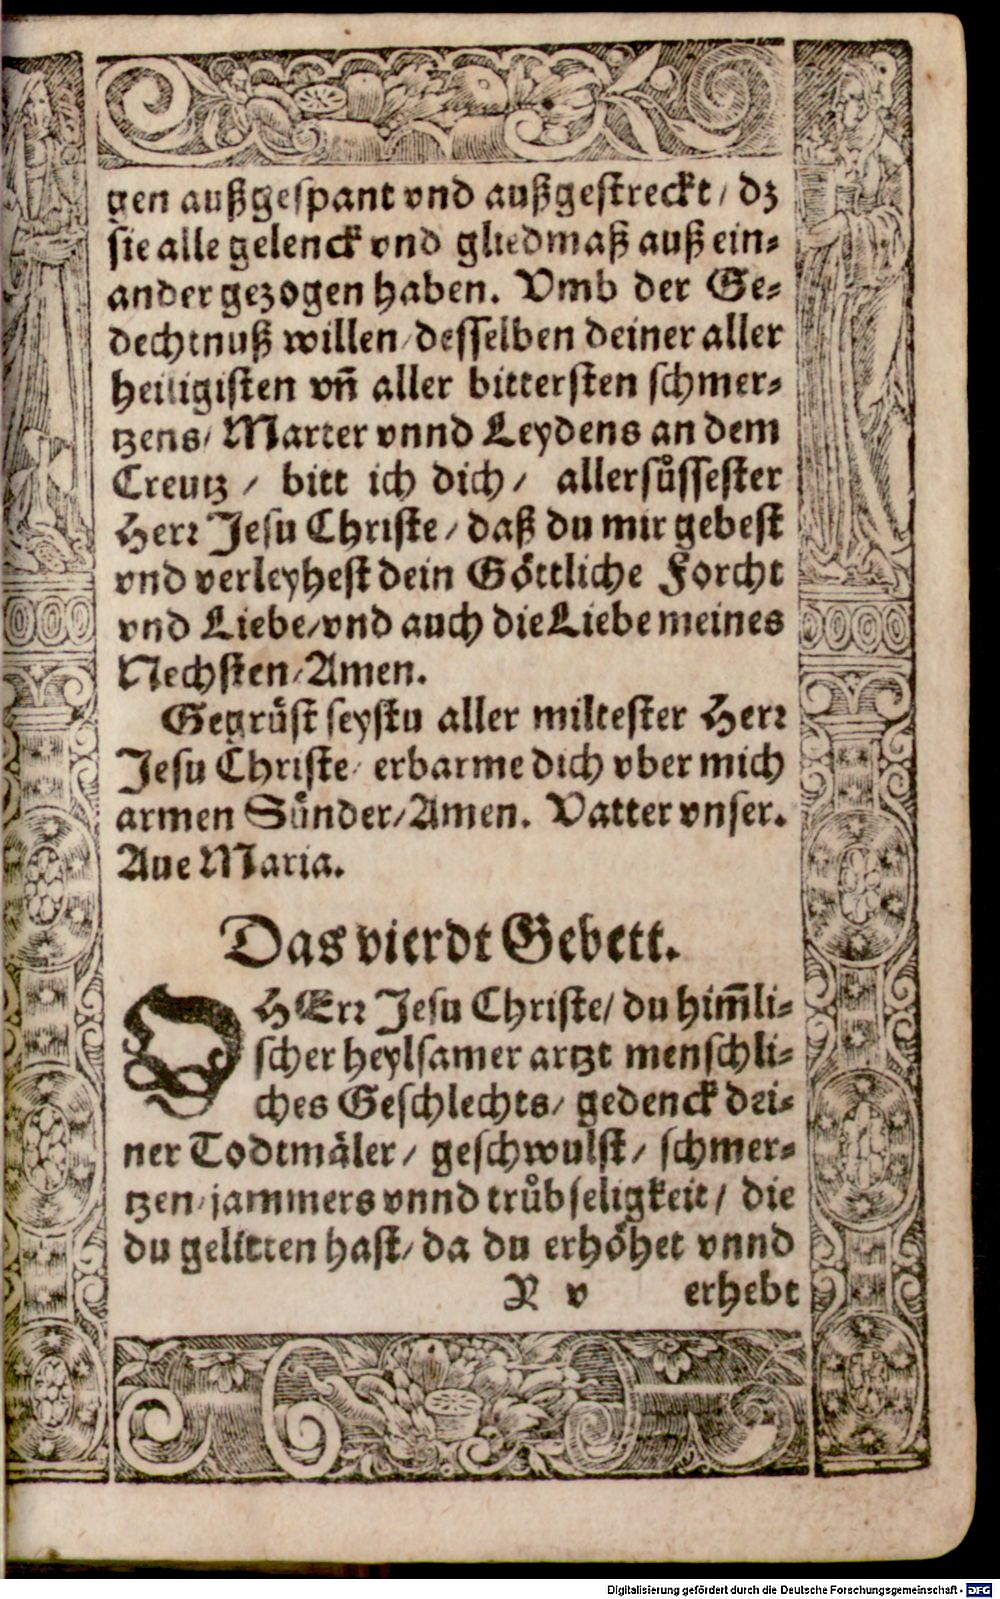 gen außgespant vnd außgestreckt / dz
sie alle gelenck vnd gliedmaß auß ein⸗
ander gezogen haben. Vmb der Ge⸗
dechtnuß willen / desselben deiner aller
heiligisten vn̄ aller bittersten schmer⸗
tzens / Marter vnnd Leydens an dem
Creutz / bitt ich dich / allersuͤssester
Herr Jesu Christe / daß du mir gebest
vnd verleyhest dein Göttliche Forcht
vnd Liebe / vnd auch die Liebe meines
Nechsten / Amen.
Gegruͤst seystu aller miltester Herr
Jesu Christe / erbarme dich vber mich
armen Suͤnder / Amen. Vatter vnser.
Aue Maria.
Das vierdt Gebett.
O HErr Jesu Christe / du him̄li⸗
scher heylsamer artzt menschli⸗
ches Geschlechts / gedenck dei⸗
ner Todtmäler / geschwulst / schmer⸗
tzen / jammers vnnd truͤbseligkeit / die
du gelitten hast / da du erhöhet vnnd
R v erhebt
Digitalisierung gefördert durch die Deutsche Forschungsgemeinschaft - DFG